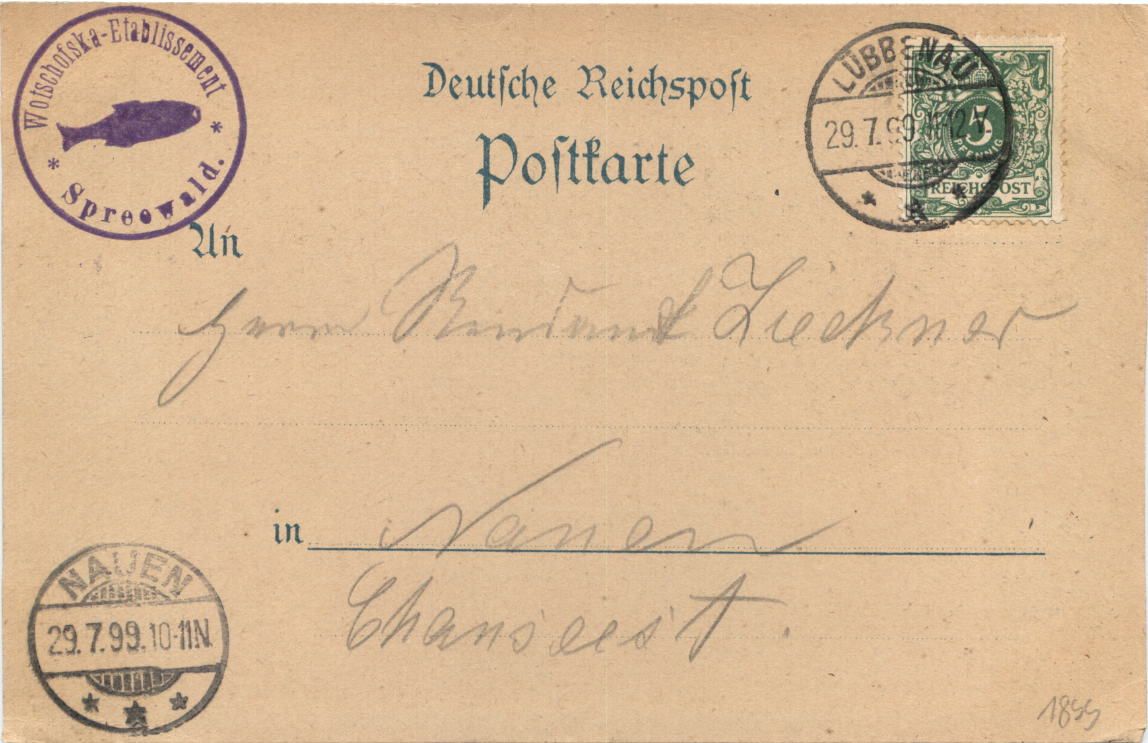 Wotschofska-Etablissement
* Spreewald. *
Deutsche Reichspost
Postkarte
LÜBBENAU
29.7.99.11-12V
* A *
5
PFENNIG
REICHSPOST
An
Herrn Rendant Zieckner
in Nauen
Chausseest.
NAUEN
29.7.99.10-11N.
* * *
1899